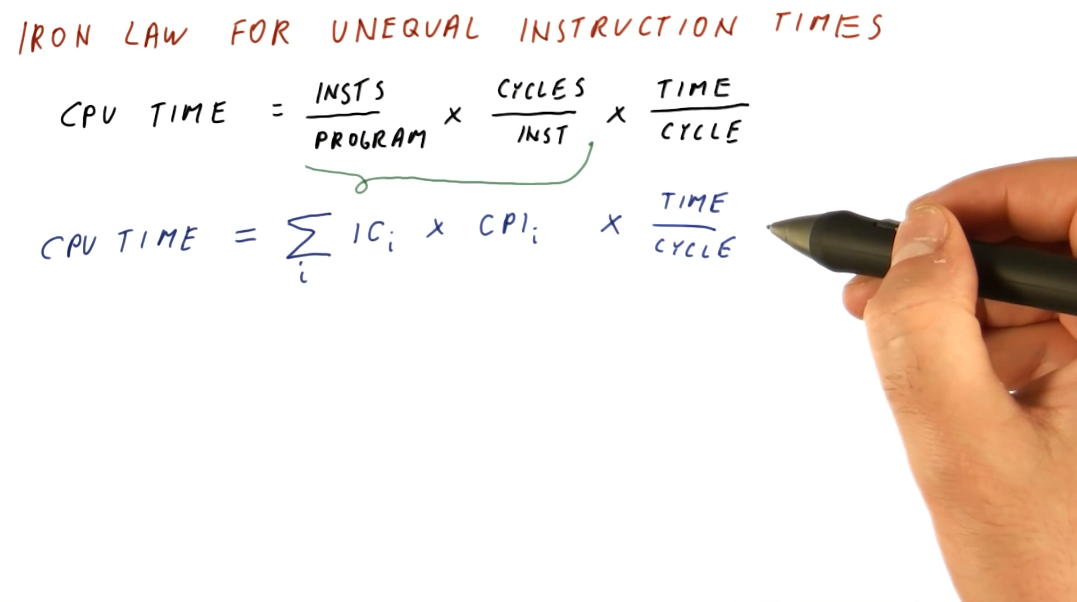 IRON LAW FOR UNEQUAL INSTRUCTION TIMES
CPU TIME = INSTS/PROGRAM × CYCLES/INST × TIME/CYCLE
CPU TIME = ∑i ICi × CPIi × TIME/CYCLE